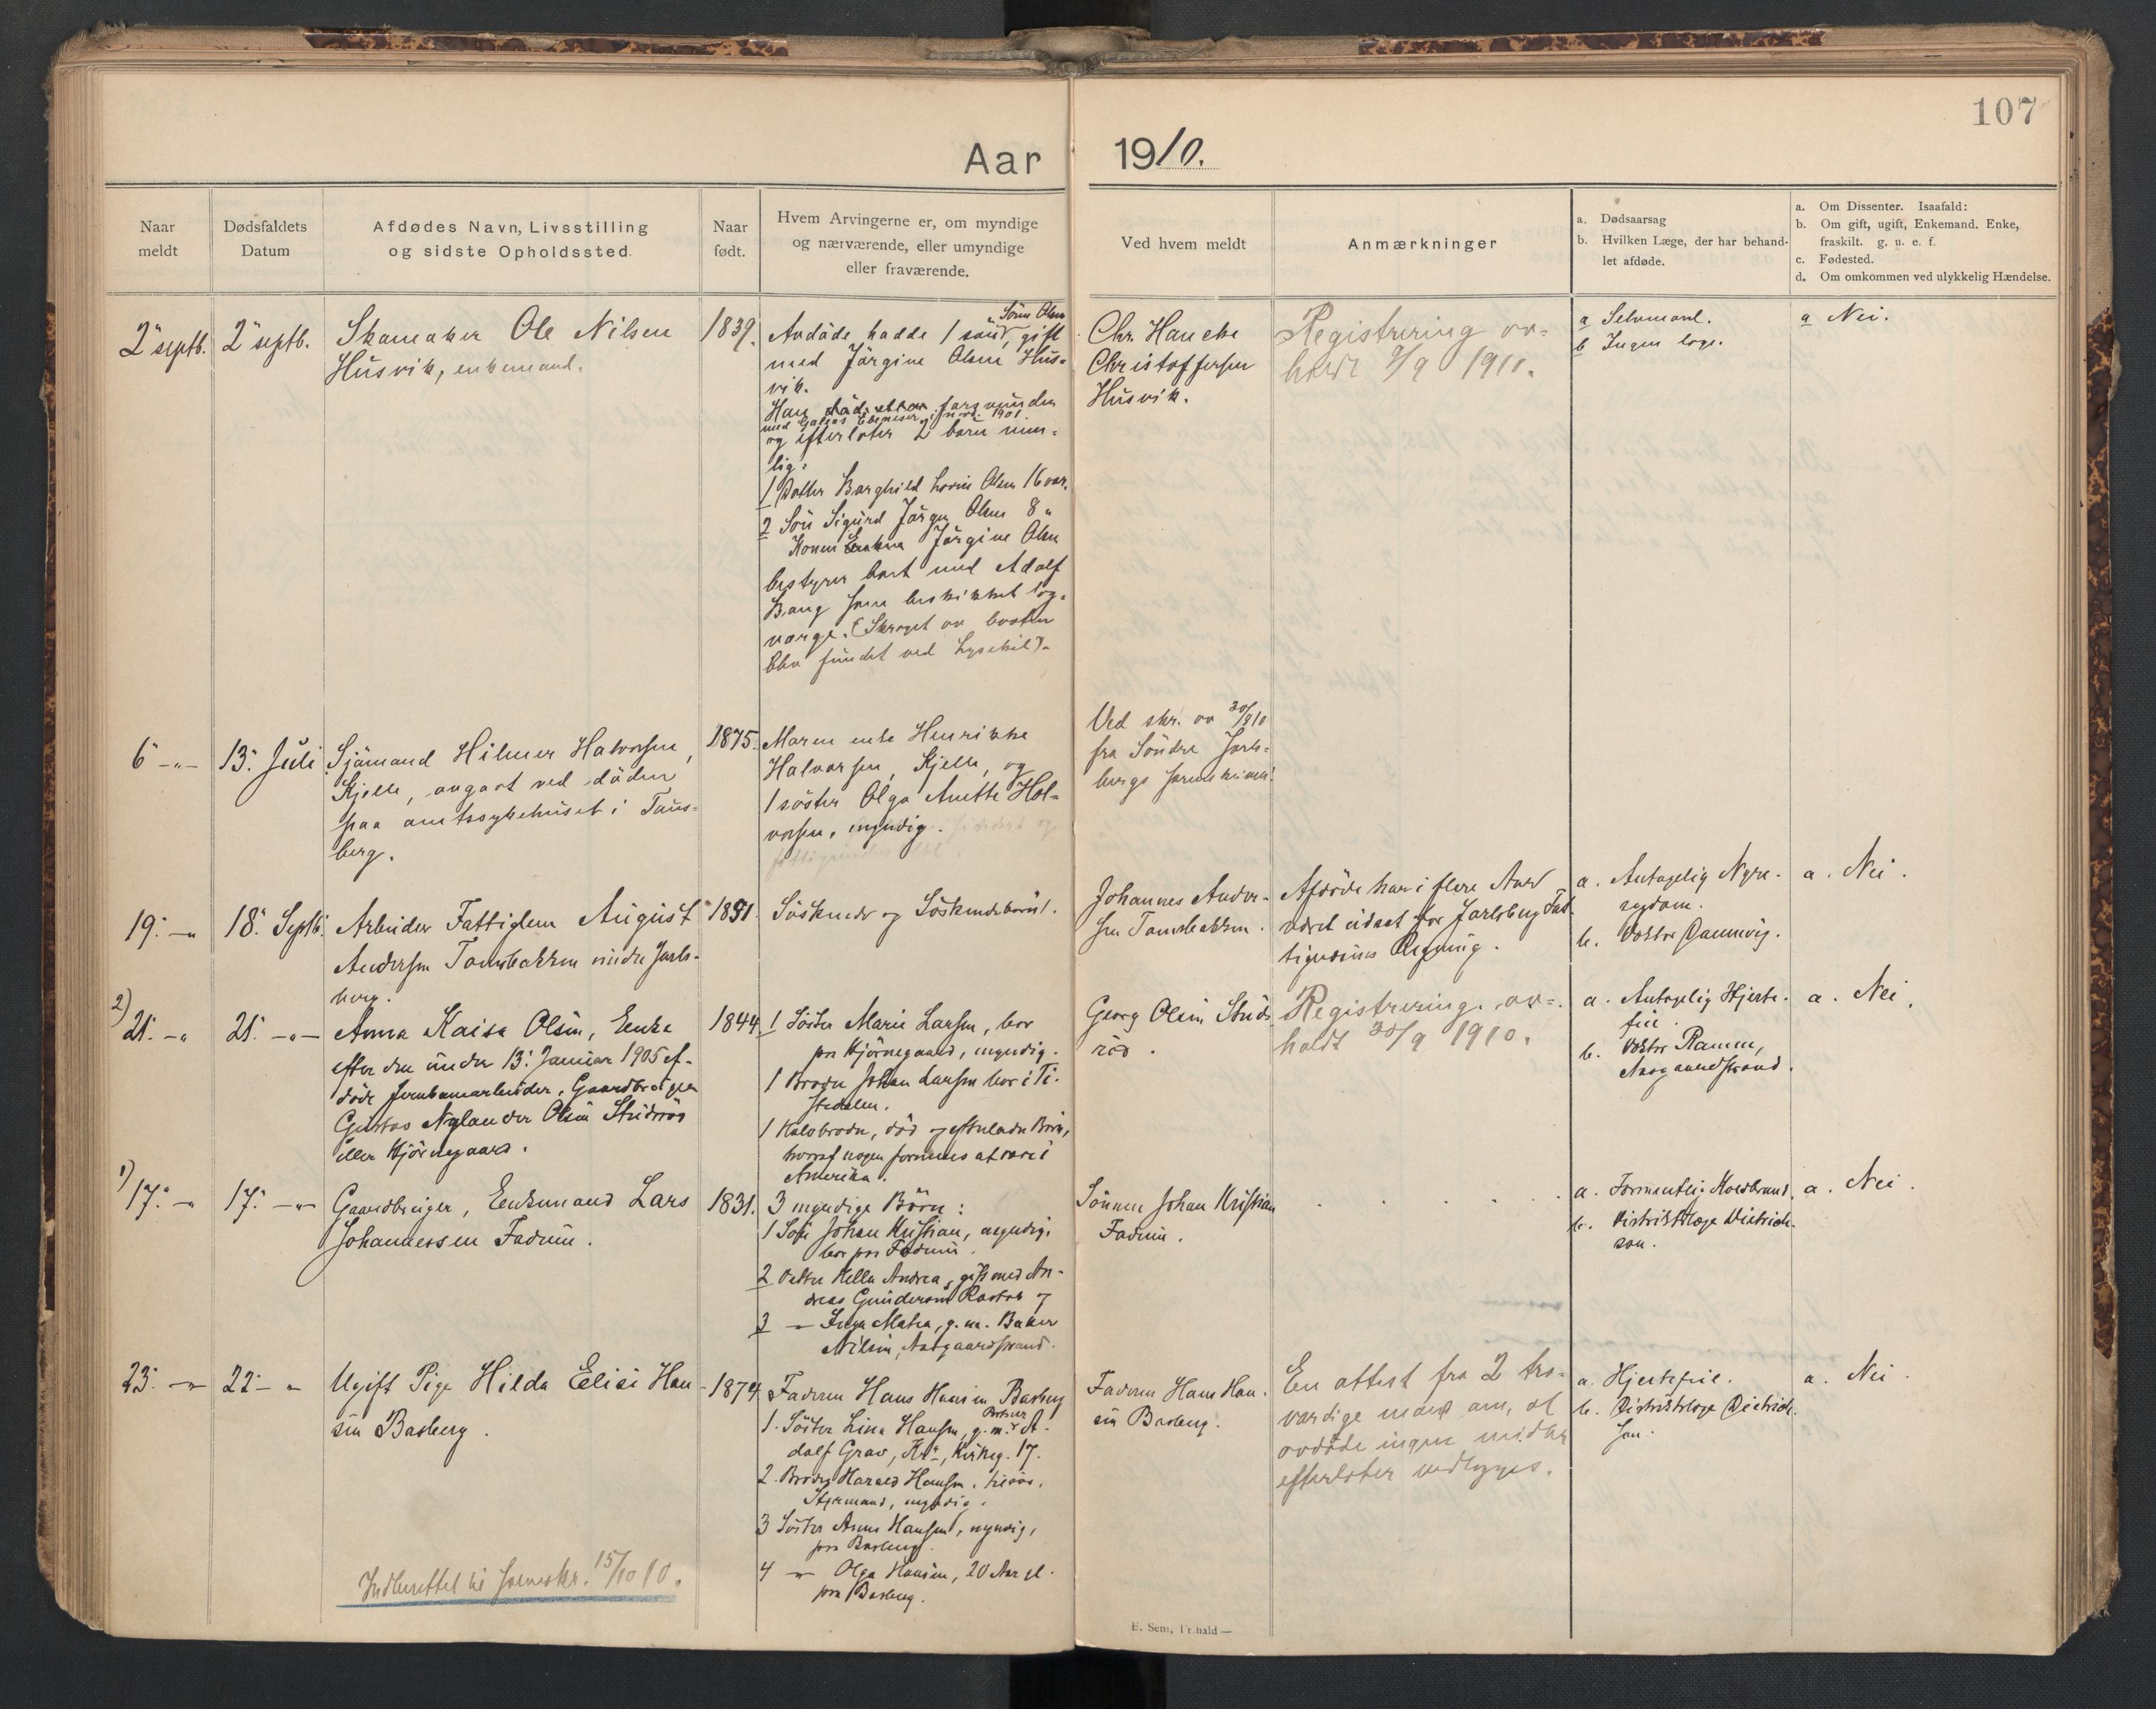 107
Aar 1910.
Naar meldt
Dødsfaldets Datum
Afdødes Navn, Livsstilling og sidste Opholdssted.
Naar født.
Hvem Arvingerne er, om myndige og nærværende, eller umyndige eller fraværende.
Ved hvem meldt
Anmærkninger
a. Dødsaarsag
b. Hvilken Læge, der har behand-
let afdøde.
a. Om Dissenter. Isaafald:
b. Om gift, ugift, Enkemand, Enke,
fraskilt. g. u. e. f.
c. Fødested.
d. Om omkommen ved ulykkelig Hændelse.
2 septb.
2 septb.
Skomaker Ole Nilsen
Husvik, enkemand.
1839.
Sören Olsen
Avdöde hadde 1 sön, gift
med Jörgine Olsen Hus-
vik.
Han
1901
og efterlater 2 barn nem-
lig:
1 Datter Borghild Olsen 16 aar.
2 Sön Sigurd Jörgen Olsen 8 "
Konen Jörgine Olsen
bestyrer boet med Adolf
Bang som beskikket lag-
værge. (Skroget av baaten
blev fundet ved Lysekil).
Chr. Hancke
Christoffersen
Husvik.
Registrering av-
holdt 9/9 1910.
a Selvmord.
b Ingen læge.
a Nei.
6 -"-
13. Juli
Sjömand Hilmer Halvorsen,
Kjelle, avgaat ved döden
paa amtssykehuset i Töns-
berg.
1875.
Moren enke Henrikke
Halvorsen, Kjelle, og
1 söster Olga Anette Hal-
vorsen, myndig.
Ved skr. av 30/8 10
fra Söndre Jarls-
bergs sorenskriveri.
19. -"
18. Septb.
Arbeider Fattiglem August
Andersen Tomsbakken nedre Jarls-
berg.
1851.
Söskende og Söskendebörn.
Johannes Ander-
sen Tomsbakken.
Afdöde har i flere Aar
været udsat for Jarlsberg Fat-
tigvæsens Regning.
a. Antagelig Nyre-
sygdom.
b. Doktor Dannevig.
a. Nei.
2)
21. -"
21. -"-
Anna Kaisa Olsen, Enke
efter den under 13. Januar 1905 af-
döde Jernbanearbeider, Gaardbruger
Gustav Nylander Olsen Studsröd
eller Hjörnegaard.
1844.
1 Söster Marie Larsen, bor
paa Hjörnegaard, myndig.
1 Broder Johan Larsen bor i Ti-
stedalen.
1 Halvbroder, död og efterladt Börn,
hvoraf nogen formenes at være i
Amerika.
Georg Olsen Studs-
röd.
Registrering av-
holdt 30/9 1910.
a. Antagelig Hjerte-
feil.
b. Doktor Ramm,
Aasgaardstrand.
a. Nei.
1)
17. -"
17. -"-
Gaardbruger, Enkemand Lars
Johannessen Fadum.
1831.
3 myndige Börn:
1 Sön Johan Kristian, myndig,
bor paa Fadum.
2 Datter Hella Andrea, gift med An-
dreas Gundersen Rastad og
3 -"- Inga Matea, g. m. Baker
Nilsen, Aasgaardstrand.
Sönnen Johan Kristian
Fadum.
a. Formentlig Koldbrand.
b. Distriktslæge Dietrich-
son.
a. Nei.
23. -"-
22. -"
Ugift Pige Hilda Elise Han-
sen Basberg.
1874.
Faderen Hans Hansen Basberg
1. Söster Lina Hansen, g. m. A-
dolf Grav, Kr.a, Kirkeg. 17.
2. Broder Harald Hansen,
Styrmand, myndig.
3 Söster Anna Hansen, myndig,
paa Basberg.
4 -"- Olga Hansen, 20 Aar gl.
paa Basberg.
Faderen Hans Han-
sen Basberg.
En attest fra 2 tro-
værdige mænd om, at
avdöde ingen midler
efterlater vedlægges.
a. Hjertefeil.
b. Distriktslæge Dietrich-
son.
a. Nei.
Indberettet til sorenskr. 15/10 10.
E. Sem, Fr.hald —